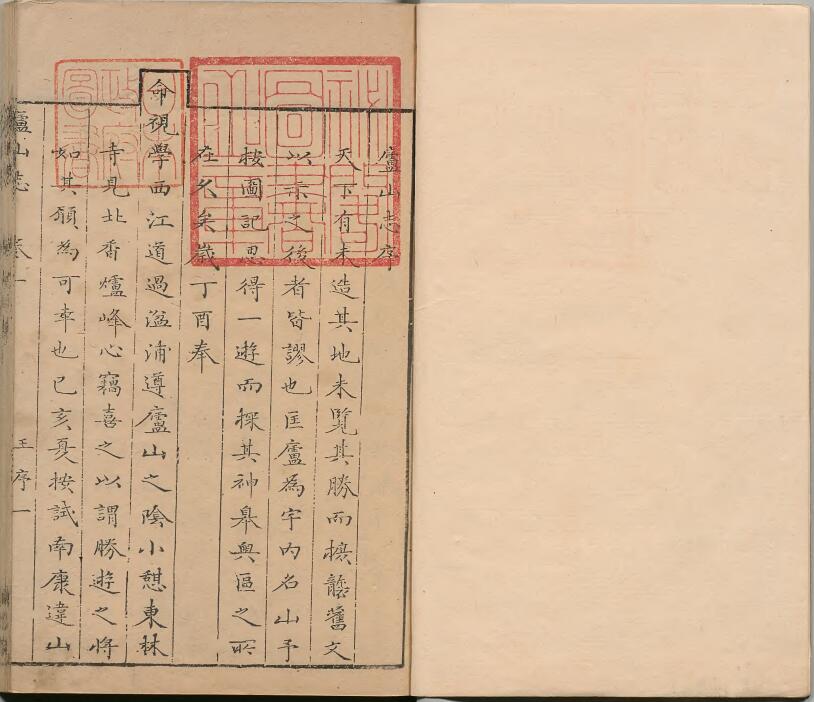 廬山志序
天下有未造其地未覽其勝而舊文
以示之後者皆謬也匡廬為宇內名山予
按圖記思得一遊而探其神皋奧區之所
在久矣歲丁酉奉
命視學西江道過湓浦遵廬山之陰小憩東林
寺見北香爐峰心竊喜之以謂勝遊之將
如其願為可幸也已亥夏按試南康違山
廬山志 卷一 王序一